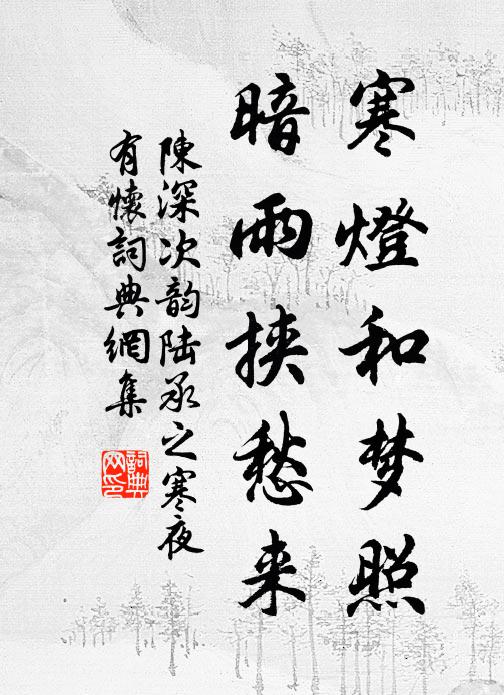 寒燈和梦照
暗雨挟愁来
陳深次韵陆承之寒夜
有懷詞典網集
詞典
网印